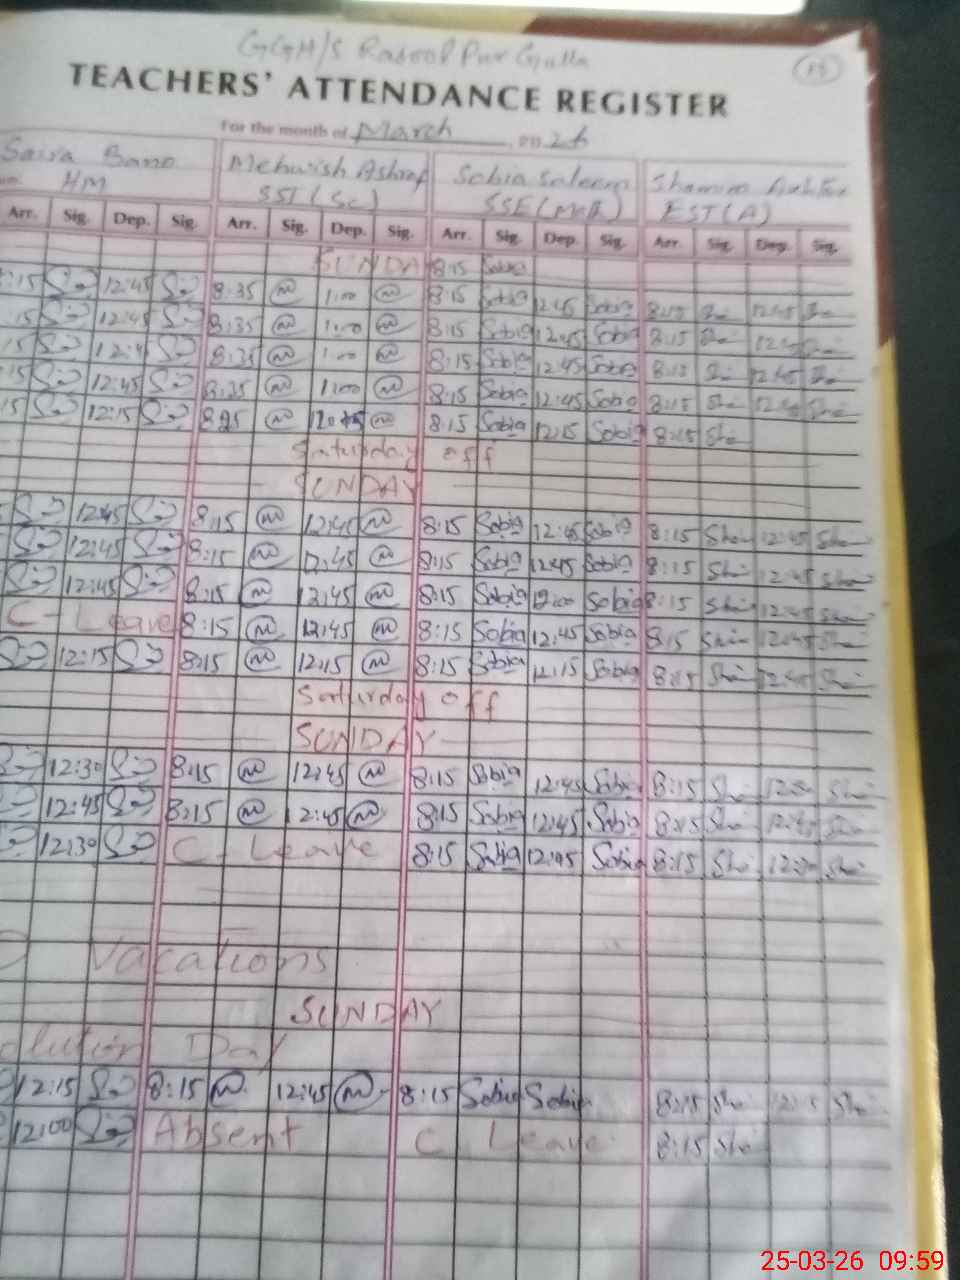 GGH/S Rasool Pur Gulla
TEACHERS' ATTENDANCE REGISTER
For the month of March 2026
Saira Bano Mehwish Ashraf Sobia Saleem Shamim Akhtar
HM SST (Sc) SSE (Math) EST (A)
Arr. Sig. Dep. Sig. Arr. Sig. Dep. Sig. Arr. Sig. Dep. Sig. Arr. Sig. Dep. Sig.
SUNDAY 8:15 Sobia
:15 12:45 8:35 1:00 8:15 Sobia 12:45 Sobia 8:15 Sha 12:45 Sha
:15 12:45 8:35 1:00 8:15 Sobia 12:45 Sobia 8:15 Sha 12:45 Sha
15 12:4 8:35 1:00 8:15 Sobia 12:45 Sobia 8:15 Sha 12:45 Sha
:15 12:45 8:35 1:00 8:15 Sobia 12:45 Sobia 8:15 Sha 12:45 Sha
15 12:15 8:15 Sobia 12:15 Sobia 8:15 Sha
Saturday off
SUNDAY
12:45 8:15 12:45 8:15 Sobia 12:45 Sobia 8:15 Sha 12:45 Sha
12:45 8:15 12:45 8:15 Sobia 12:45 Sobia 8:15 Sha 12:45 Sha
12:45 8:15 12:45 8:15 Sobia Sobia 8:15 Sha 12:45 Sha
C-Leave 8:15 12:45 8:15 Sobia 12:45 Sobia 8:15 Sha 12:45 Sha
12:15 8:15 12:15 8:15 Sobia 12:15 Sobia 8:15 Sha 12:45 Sha
Saturday off
SUNDAY
12:30 8:15 12:45 8:15 Sobia 12:45 Sobia 8:15 Sha Sha
12:45 8:15 12:45 8:15 Sobia 12:45 Sobia 8:15 Sha 12:45 Sha
12:30 C. Leave 8:15 Sobia 12:45 Sobia 8:15 Sha Sha
Vacations
SUNDAY
olution Day
12:15 8:15 12:45 8:15 Sobia Sobia 8:15 Sha 12:15 Sha
12:00 Absent C. Leave 8:15 Sha
25-03-26 09:59